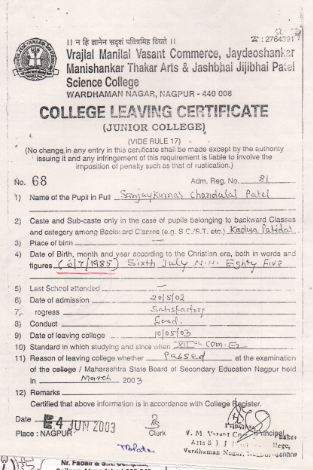 ॥ न हि ज्ञानेन सदृशं पवित्रमिह विद्यते ॥
Vrajlal Manilal Vasant Commerce, Jaydeoshankar
Manishankar Thakar Arts & Jashbhai Jijibhai Patel
Science College
WARDHAMAN NAGAR, NAGPUR - 440 008
COLLEGE LEAVING CERTIFICATE
(JUNIOR COLLEGE)
(VIDE RULE 17)
(No change in any entry in this certificate shall be made except by the authority
issuing it and any infringement of this requirement is liable to involve the
imposition of penalty such as that of rustication.)
No. 68 Adm. Reg. No. 81
1) Name of the Pupil in Full Sanjaykumar Chandulal Patel
2) Caste and Sub-caste only in the case of pupils belonging to backward Classes
and category among Backward Classes (e.g. S.C./S.T. etc.) Kadwa Patidar
3) Place of birth —
4) Date of Birth, month and year according to the Christian era, both in words and
figures (6/7/1985) Sixth July N.H. Eighty Five
5) Last School attended —
6) Date of admission 20/5/02
7) rogress Satisfactory
8) Conduct Good
9) Date of leaving college 10/05/03
10) Standard in which studying and since when
11) Reason of leaving college whether Passed at the examination
of the college / Maharashtra State Board of Secondary Education Nagpur held
in March 2003
12) Remarks
Certified that above information is in accordance with College Register.
Date 24 JUN 2003
Place : NAGPUR Clerk Principal